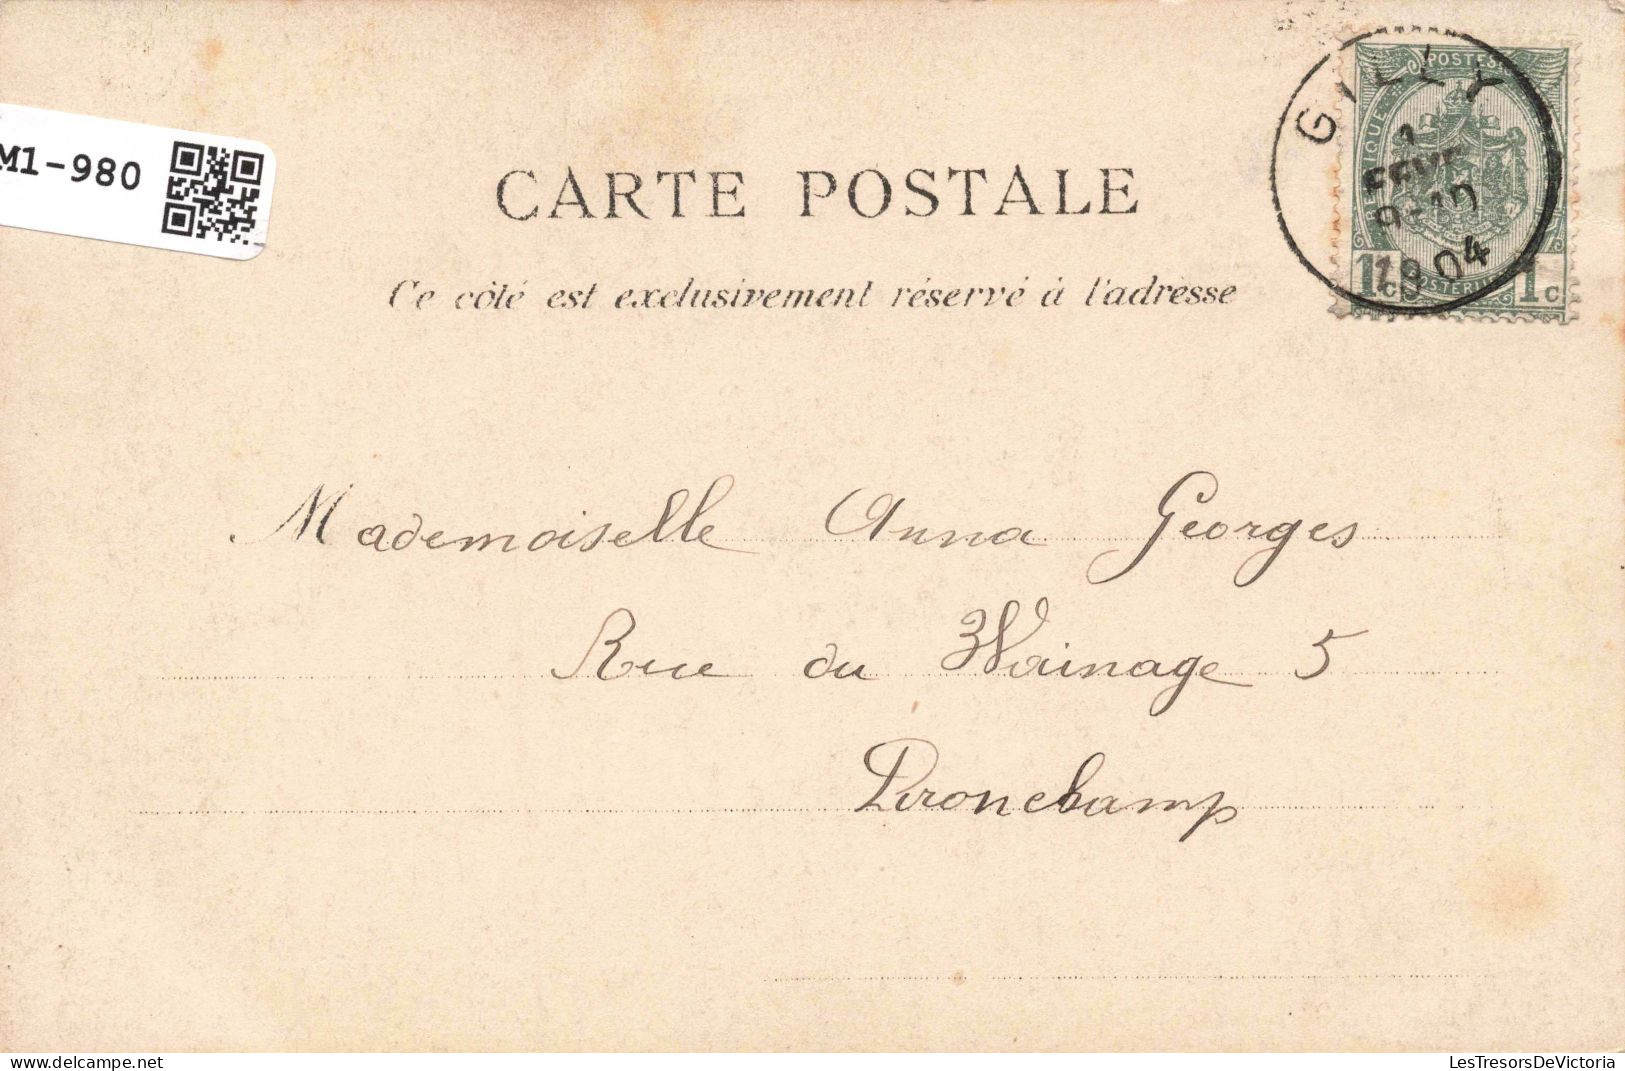 M1-980
GILLY
1
FEVR
9-10
1904
POSTES
1c 1c
CARTE POSTALE
Ce côté est exclusivement réservé à l'adresse
Mademoiselle Anna Georges
Rue du Wainage 5
Pironchamp
LesTresorsDeVictoria